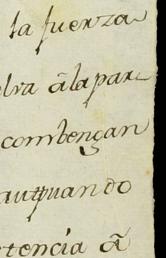 la fuerza
elva âla par
combençan
auttuando
tencia â